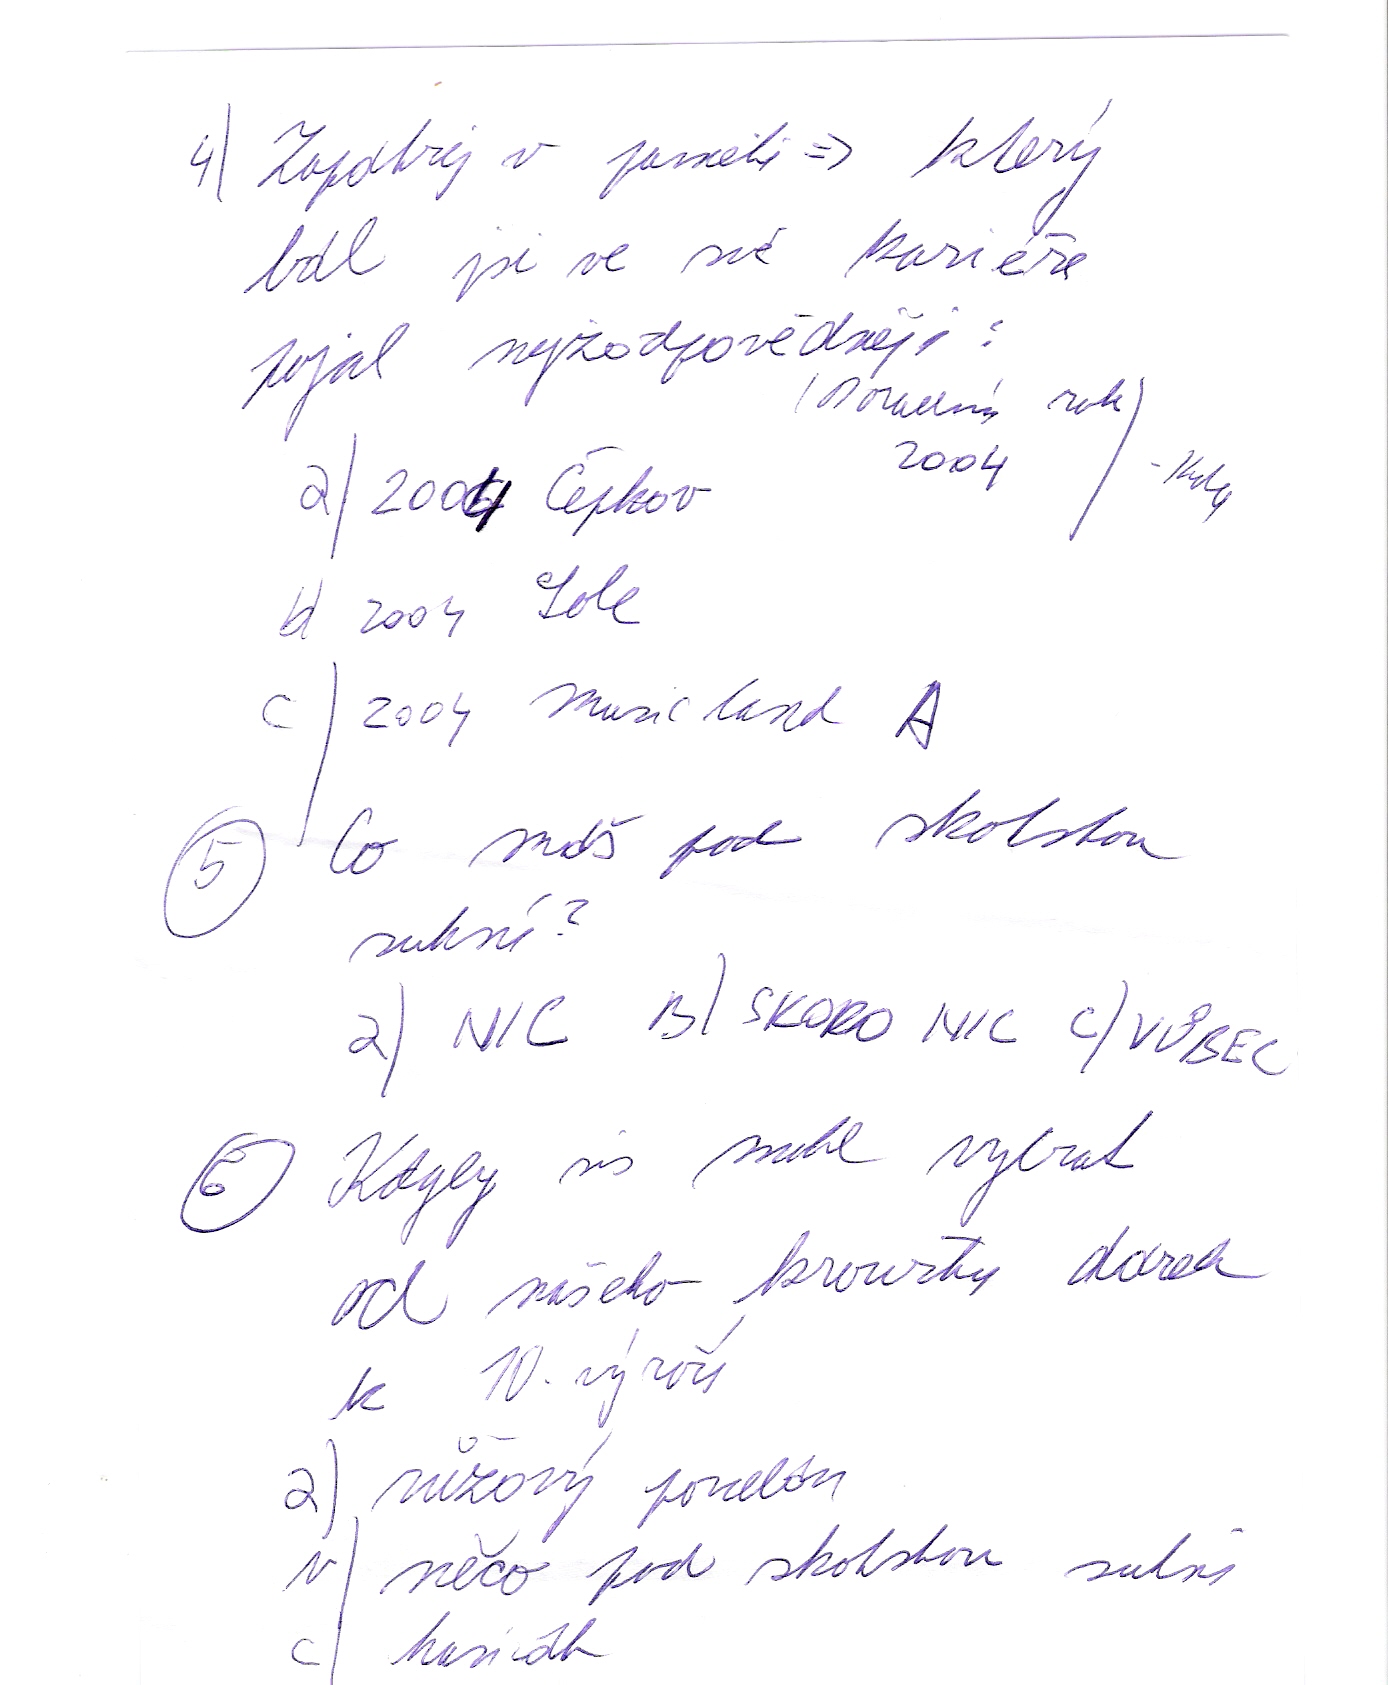 4) Zapátrej v paměti => který
bál jsi ve své kariéře
pojal nejzodpovědněji?
rok)
2004
a) 2004 Čepkov
b) 2004 Sole
c) 2004 music land A
5 Co máš pod skotskou
sukní?
a) NIC B) SKORO NIC C) VŮBEC
6 Kdyby sis mohl vybrat
od našeho kroužku dárek
k 10. výročí
a) růžový porcelán
b) něco pod skotskou sukni
c) hasičák